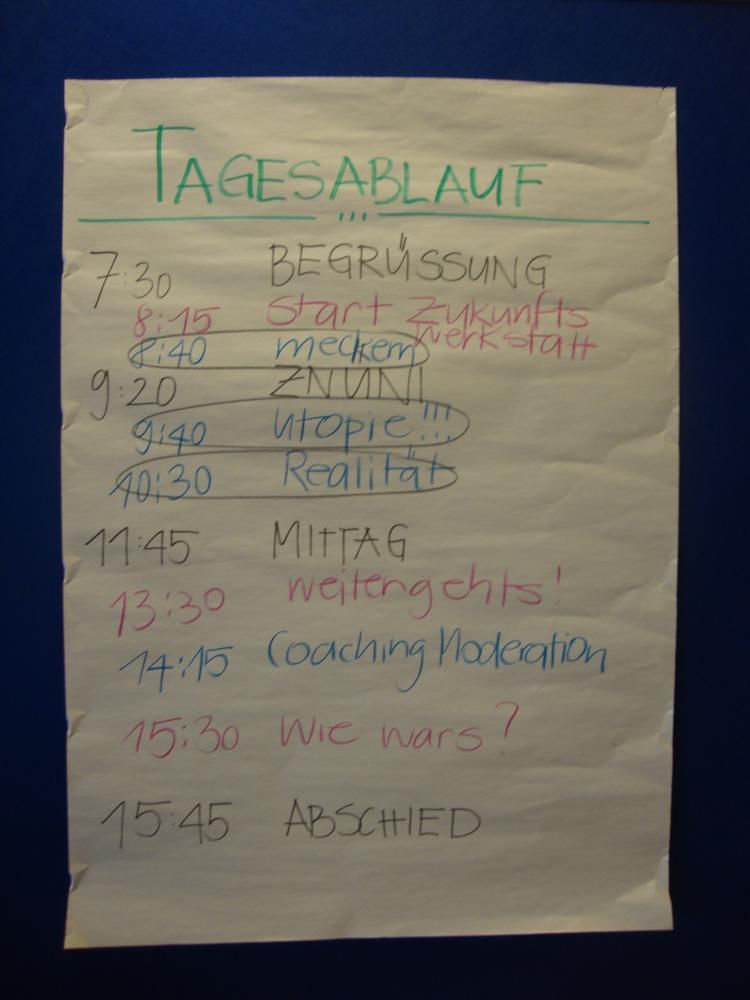 TAGESABLAUF
...
7:30 BEGRÜSSUNG
8:15 Start Zukunfts
werkstatt
8:40 meckern
9:20 ZNÜNI
9:40 utopie!!!
10:30 Realität
11:45 MITTAG
13:30 weitergehts!
14:15 Coaching Moderation
15:30 Wie wars?
15:45 ABSCHIED